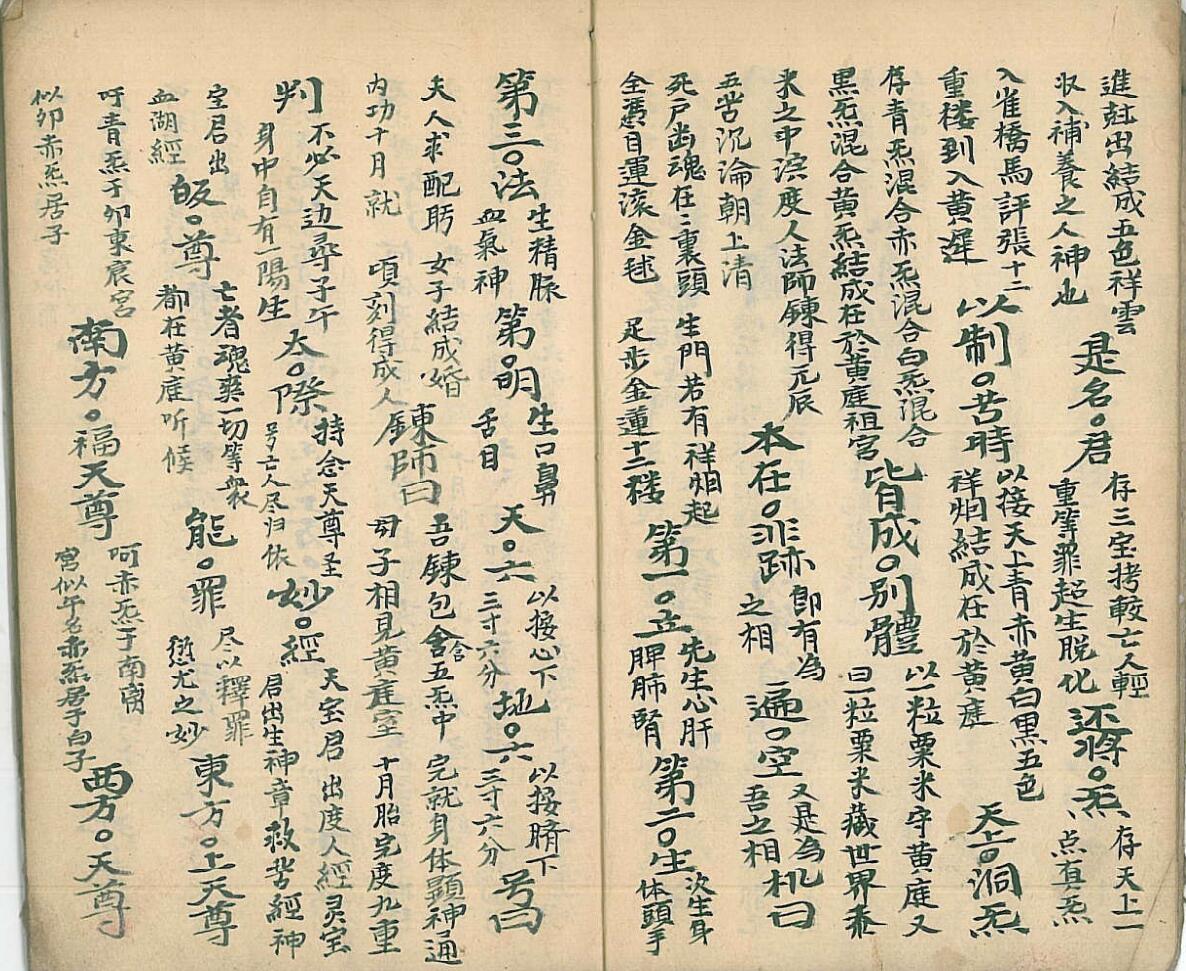 進䒴出結成五色祥雲
收入補養之人神也
是名。君
存三宝拷較亡人輕
重等罪超生脱化
还将。炁
存天上一
点有炁
入雀橋馬評張十二
重楼到入黄遅
以制。苦時
以接天上青赤黄白黑五色
祥烟結成在於黄庭
天上。洞炁
存青炁混合赤炁混合白炁混合
黑炁混合黄炁結成在於黄庭祖宫
皆成。别體
以一粒粟米守黄庭又
曰一粒粟米藏世界
来之中滨度人法師鍊得元辰
五苦沉淪朝上清
本在。非跡
即有為
之相
遍。空
又是為
吾之相
机曰
死户幽魂在三裏頭
全憑目運滚金毬
生門若有祥烟起
足步金蓮十二楼
第一。立
先生心肝
脾肺腎
第二。生
次生身
体頭手
第三。法
生精脉
血氣神
第。明
生口鼻
舌目
天。六
以接心下
三寸六分
地。六
以接臍下
三寸六分
号曰
夭人求配𦕈
女子結成婚
内功十月就
頃刻得成人
鍊師曰
吾鍊包含五炁中
含
男子相見黄庭室
完就身体顕神通
十月胎完度九重
判
不必天边尋子午
身中自有一陽生
太。際
持念天尊圣
号亡人尽归依
妙。經
天宝君出度人經灵宝
君出生神章救苦經神
宝君出
血湖經
皈。尊
亡者魂爽一切等衆
都在黄庭听候
能。罪
尽以釋罪
愆尤之妙
東方。上天尊
吁青炁于卯東宸宫
似卯赤炁居子
南方。福天尊
呵赤炁于南离
宫似午名赤炁居子白子
西方。天尊